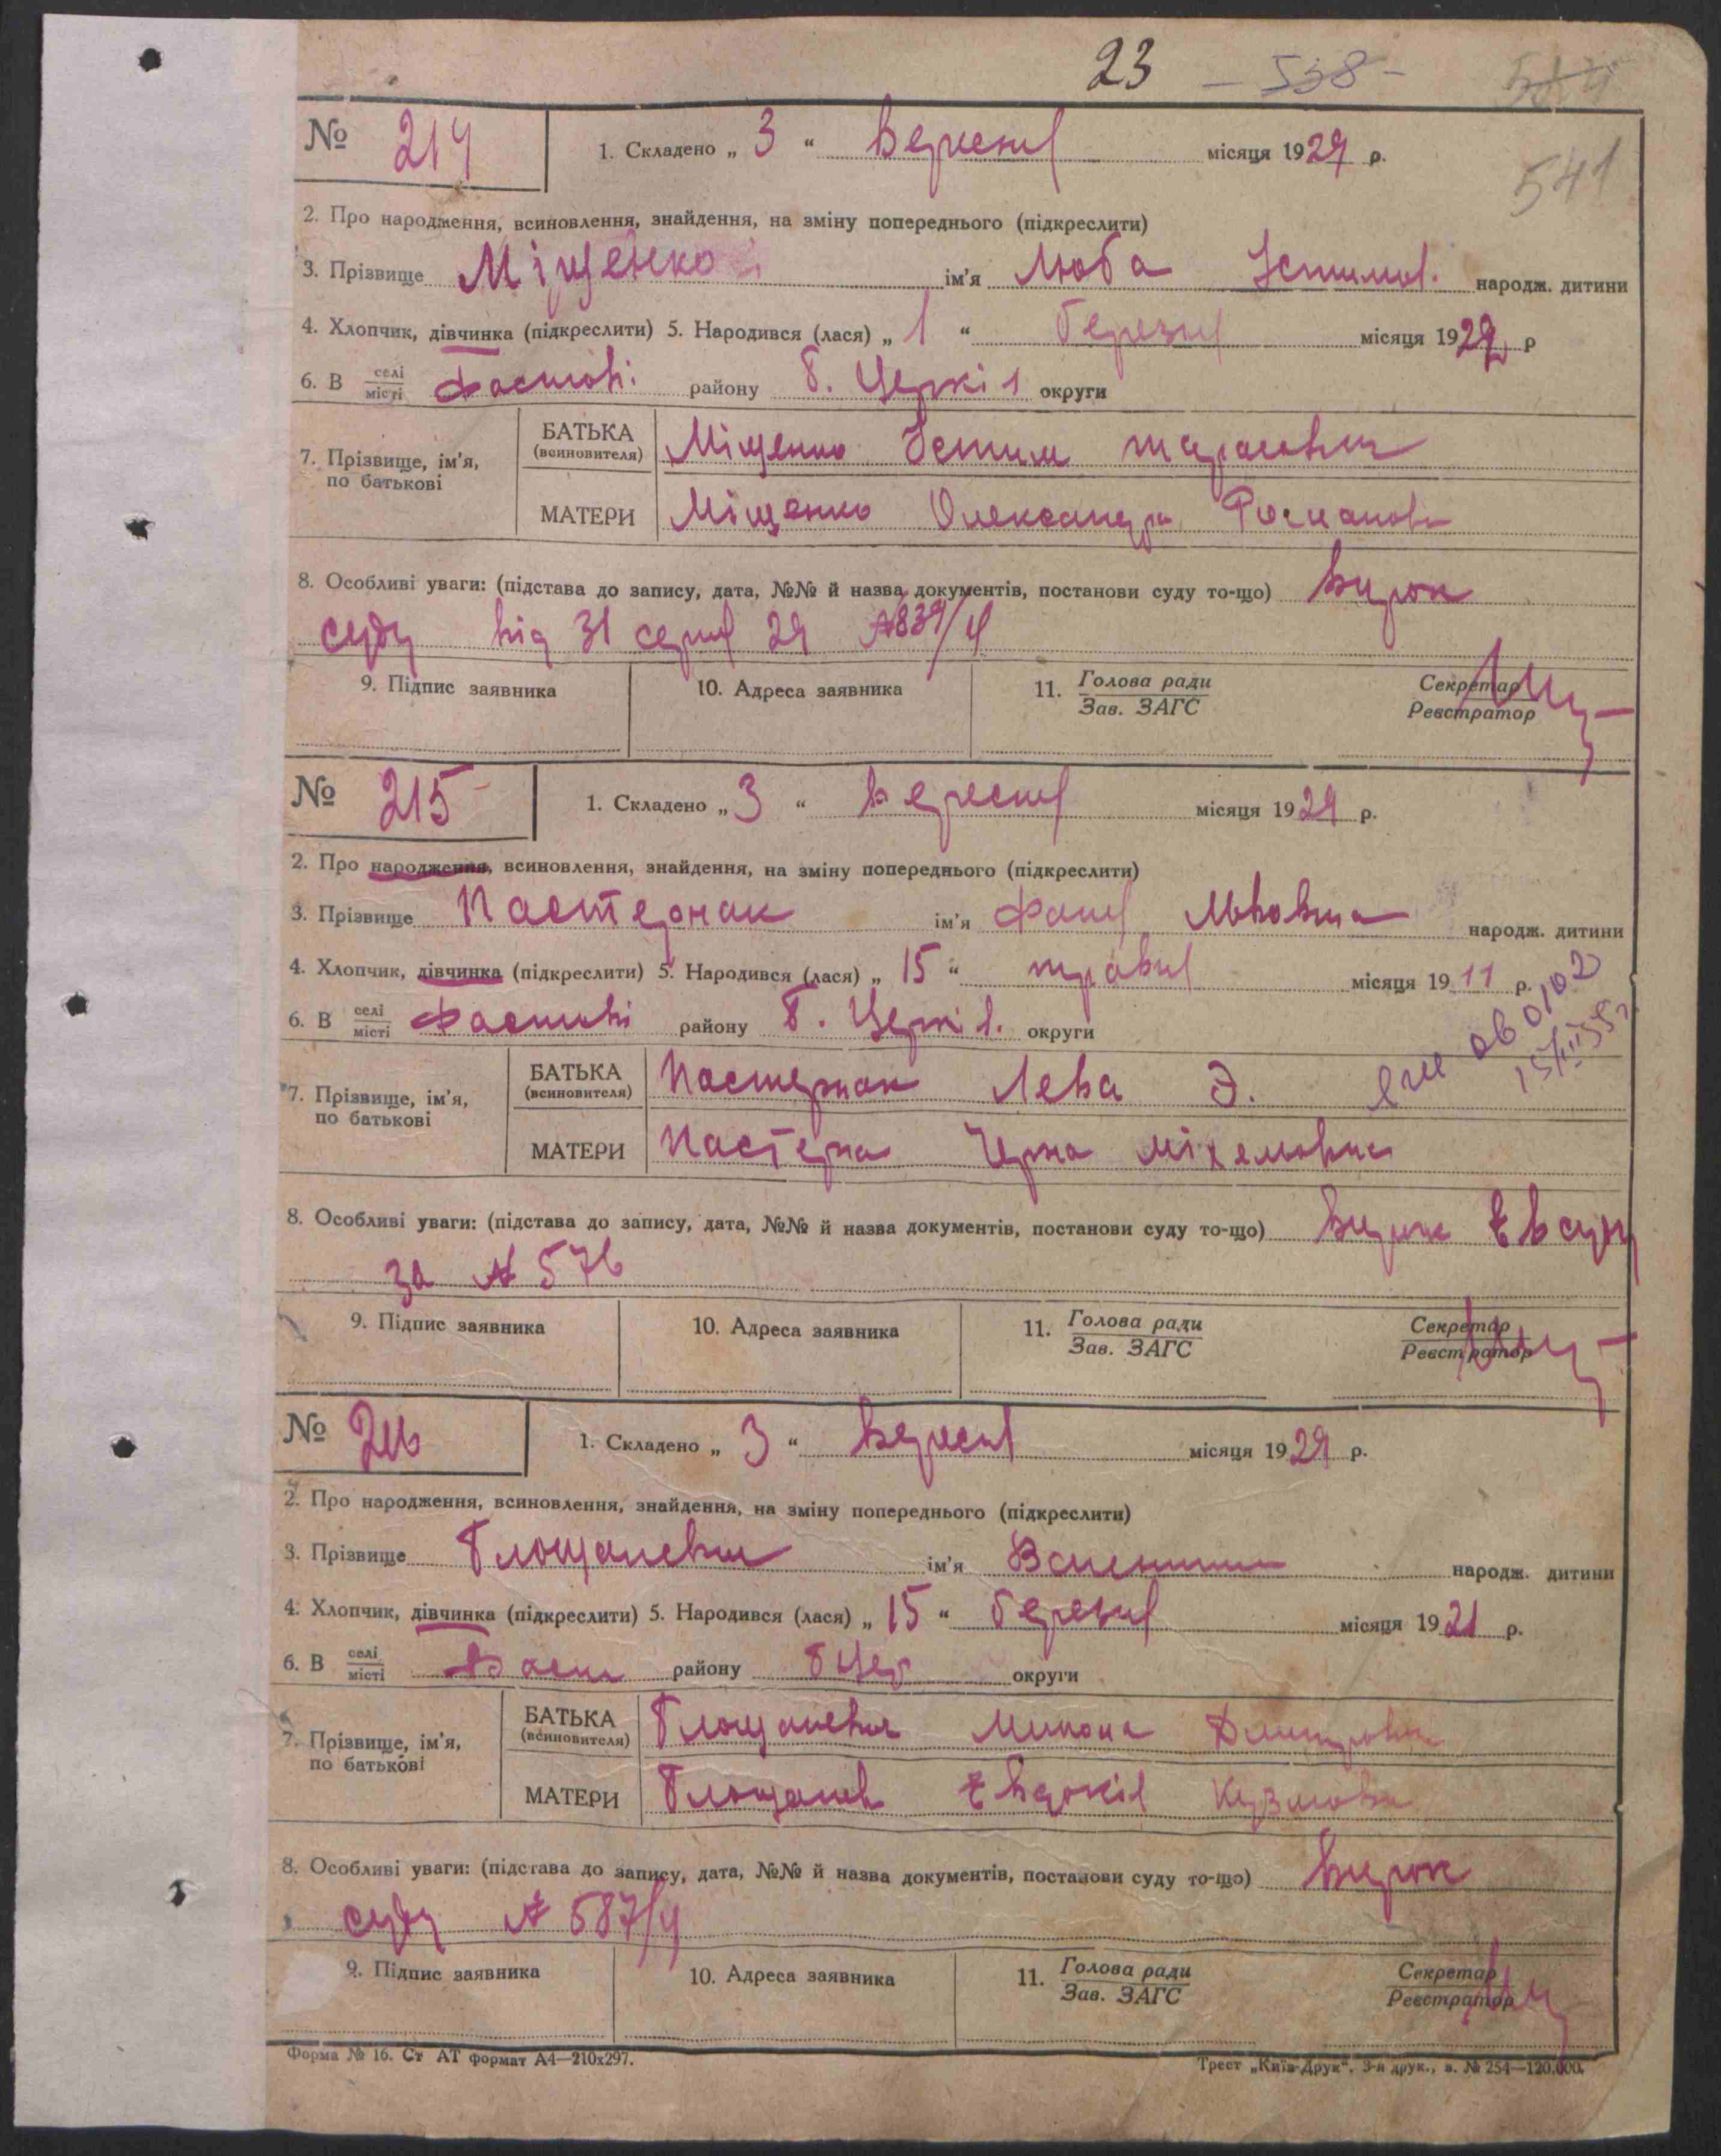 23 – 538 –
541
№ 214 1. Складено „ 3 “ Вересня місяця 1929 р.
2. Про народження, всиновлення, знайдення, на зміну попереднього (підкреслити)
3. Прізвище Міщенко ім'я Люба Устимов. народж. дитини
4. Хлопчик, дівчинка (підкреслити) 5. Народився (лася) „ 1 “ березня місяця 1922 р
6. В селі/місті Фастові району Б. Церків округи
7. Прізвище, ім'я, по батькові
БАТЬКА (всиновителя) Міщенко Устим Тарасович
МАТЕРИ Міщенко Олександра Романовн
8. Особливі уваги: (підстава до запису, дата, №№ й назва документів, постанови суду то-що) Вирок
суду від 31 серпня 29 № 839/4
9. Підпис заявника 10. Адреса заявника 11. Голова ради / Зав. ЗАГС Секретар / Реєстратор
№ 215 1. Складено „ 3 “ вересня місяця 1929 р.
2. Про народження, всиновлення, знайдення, на зміну попереднього (підкреслити)
3. Прізвище Пастернак ім'я Фаня Львовна народж. дитини
4. Хлопчик, дівчинка (підкреслити) 5. Народився (лася) „ 15 “ травня місяця 1911 р.
6. В селі/місті Фастові району Б. Церків. округи
7. Прізвище, ім'я, по батькові
БАТЬКА (всиновителя) Пастернак Лева Э.
МАТЕРИ Пастерна Черна Міхельовна
8. Особливі уваги: (підстава до запису, дата, №№ й назва документів, постанови суду то-що) Вирок Єв суду
за № 576
9. Підпис заявника 10. Адреса заявника 11. Голова ради / Зав. ЗАГС Секретар / Реєстратор
№ 216 1. Складено „ 3 “ Вересня місяця 1929 р.
2. Про народження, всиновлення, знайдення, на зміну попереднього (підкреслити)
3. Прізвище ім'я народж. дитини
4. Хлопчик, дівчинка (підкреслити) 5. Народився (лася) „ 15 “ березня місяця 1921 р.
6. В селі/місті Фаст району БЦер округи
7. Прізвище, ім'я, по батькові
БАТЬКА (всиновителя) Дмитрович
МАТЕРИ Евдокія Кузьмовна
8. Особливі уваги: (підстава до запису, дата, №№ й назва документів, постанови суду то-що) Вирок
суду № 587/4
9. Підпис заявника 10. Адреса заявника 11. Голова ради / Зав. ЗАГС Секретар / Реєстратор
Форма № 16. Ст АТ формат А4—210x297. Трест „Київ-Друк“, 3-я друк., з. № 254—120.000.